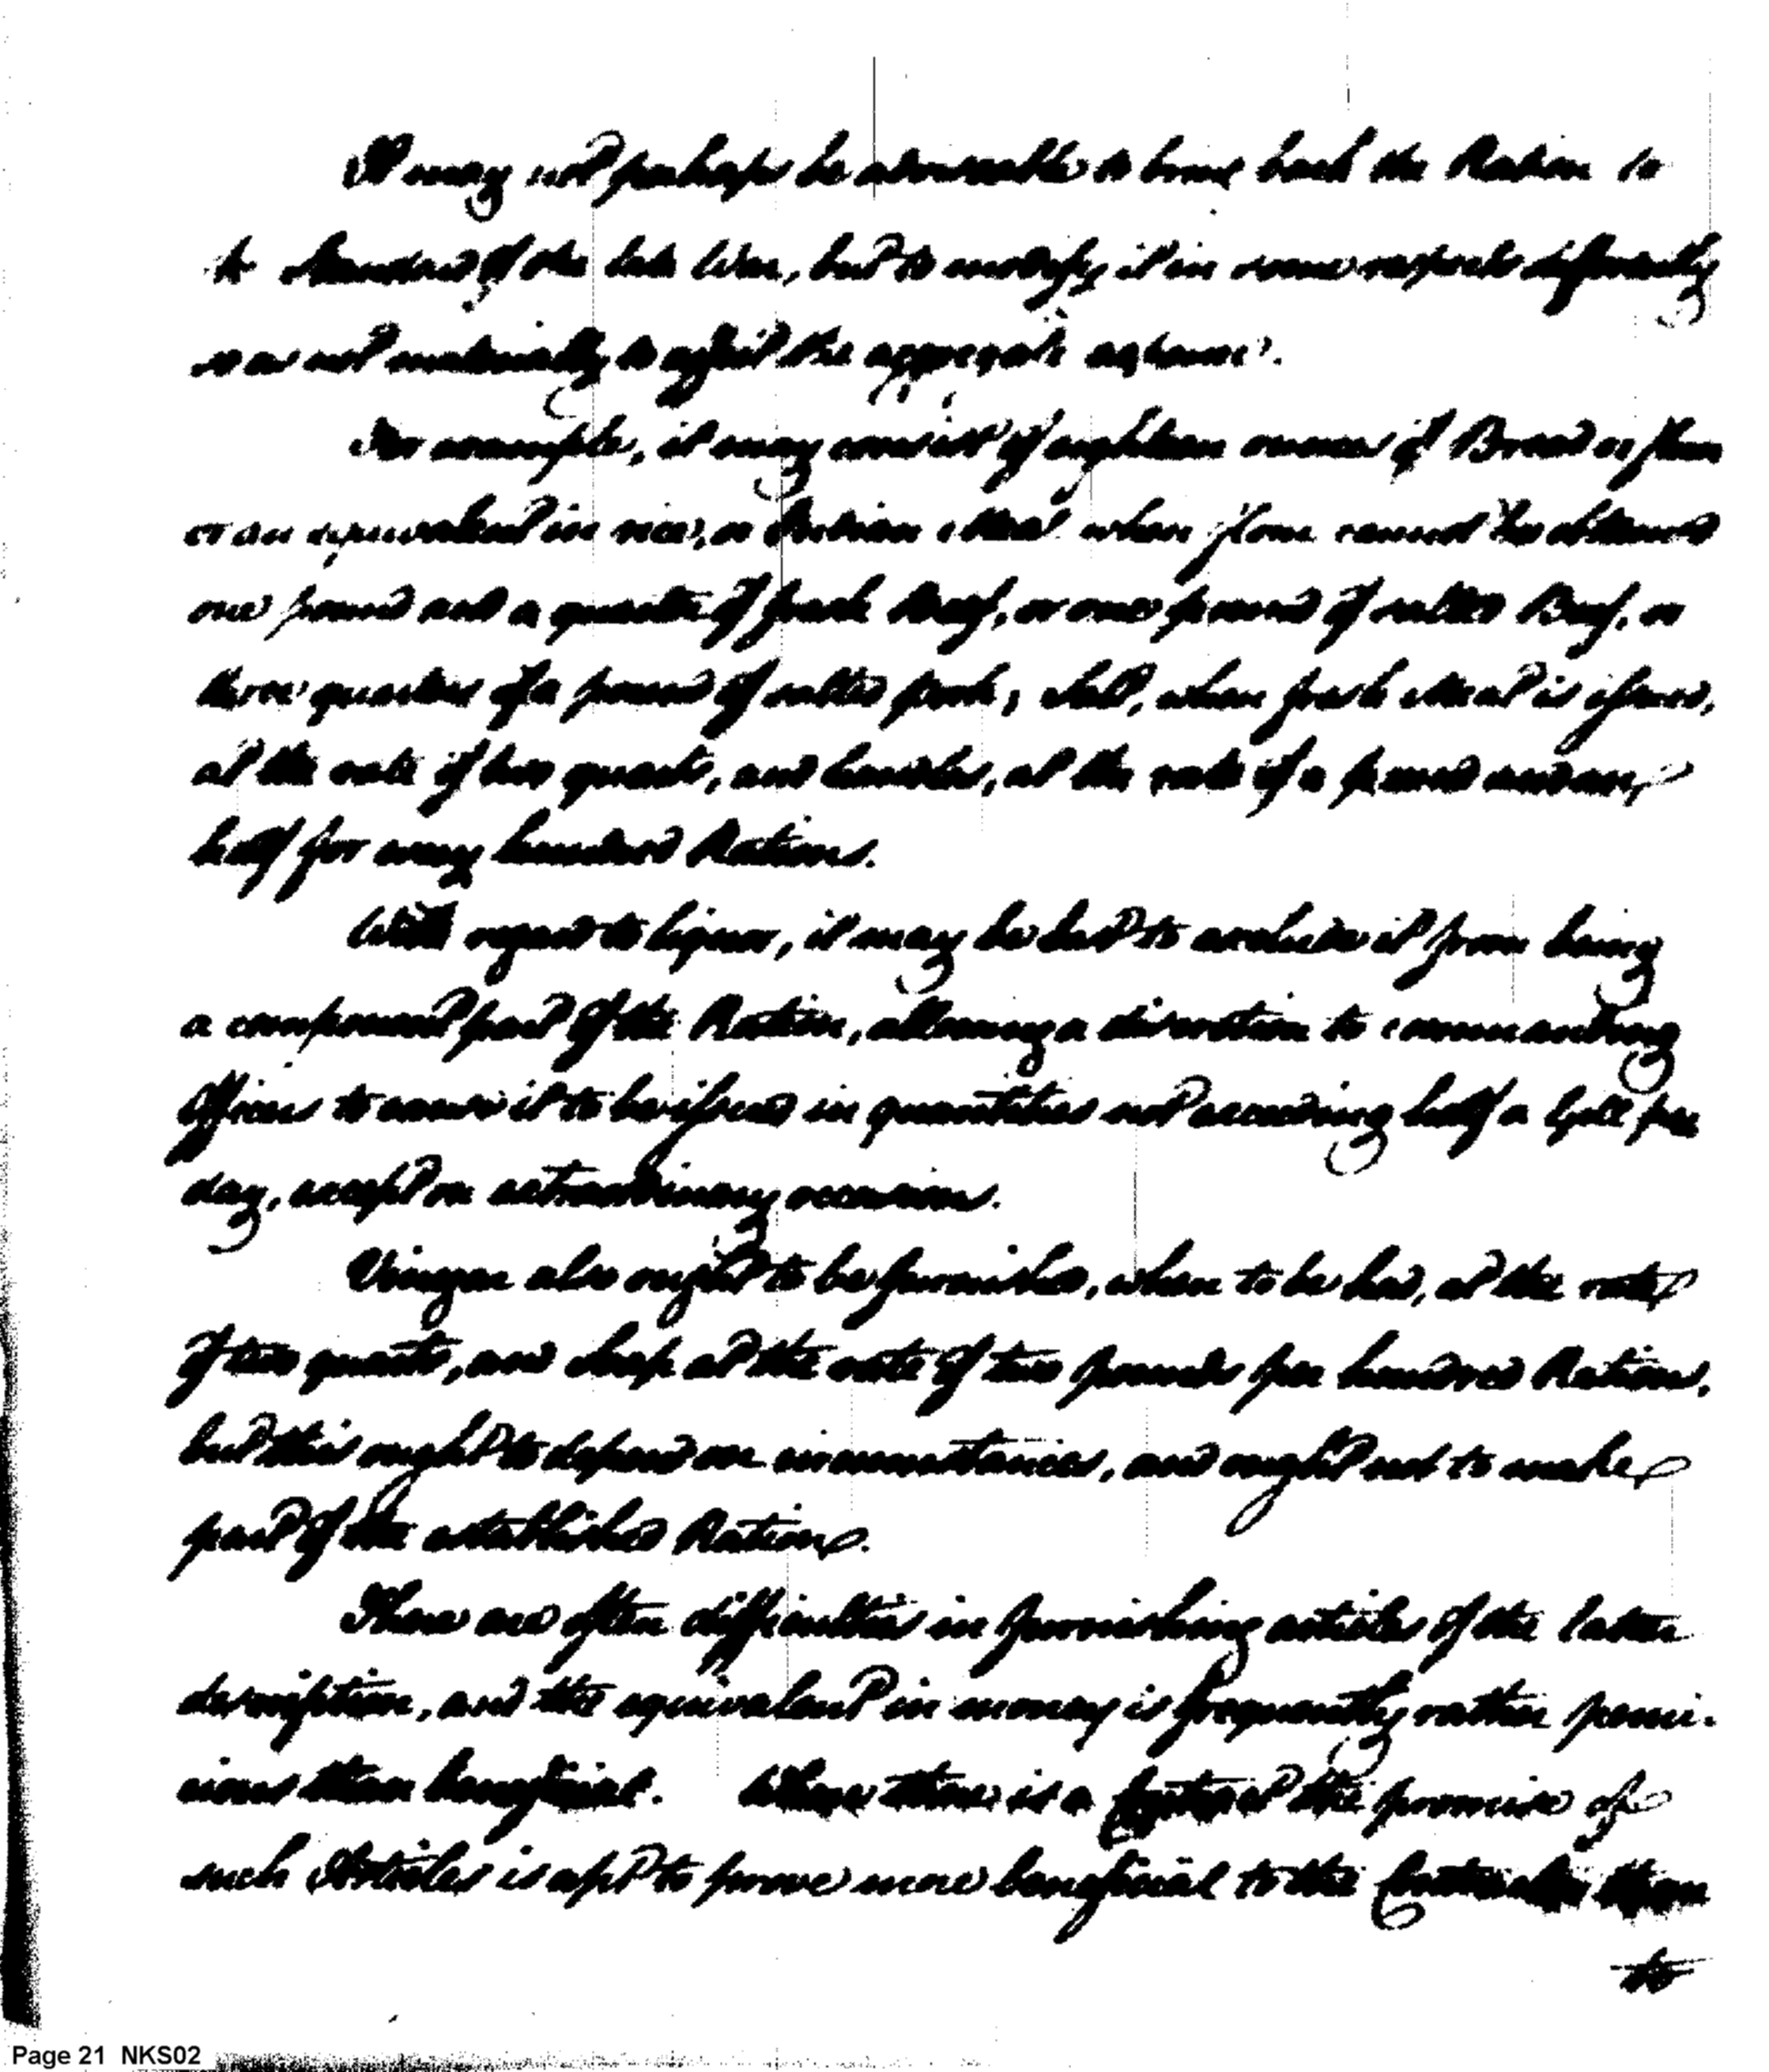 It may not perhaps be adviseable to bring back the Ration to
to standard of the late War, but to modify it in some respects differently
so as not materially to affect the aggregate expence.
For example, it may consist of eighteen ounces of Bread or flour
or an equivalent in rice, or Indian Meal when flour cannot be obtained
one pound and a quarter of fresh Beef, or one pound of salted Beef, or
three quarters of a pound of salted pork; salt, when fresh Meat is issued,
at the rate of two quarts, and candles, at the rate of a pound and an
half for every hundred Rations.
With regard to liquor, it may be best to exclude it from being
a component part of the Ration, allowing a discretion to commanding
Officers to cause it to be issued in quantities not exceeding half a Gill per
day, except on extraordinary occasions.
Vinegar also ought to be furnished, when to be had, at the rate
of two quarts, and soap at the rate of two pounds per hundred Rations,
but this ought to depend on circumstances, and ought not to make
part of the established Ration.
There are often difficulties in furnishing articles of the latter
description, and the equivalent in money is frequently rather perni-
cious than beneficial. Where there is a Contract the promise of
such Articles is apt to prove more beneficial to the Contractor than
to
Page 21 NKS02